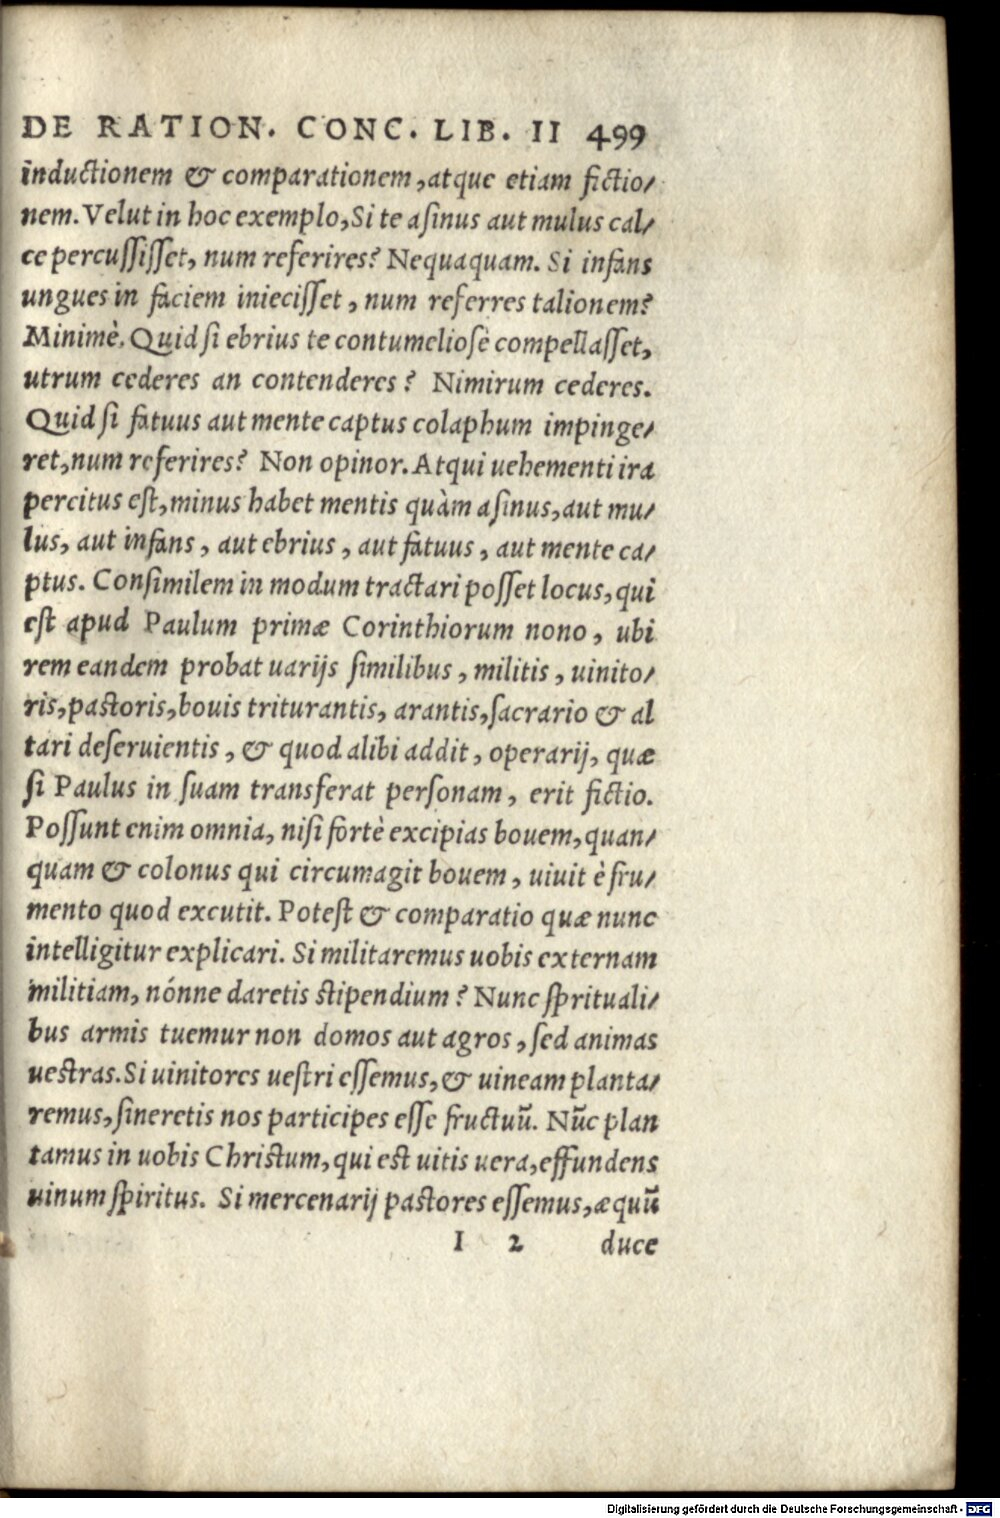 DE RATION. CONC. LIB. II 499
inductionem & comparationem, atque etiam fictio/
nem. Velut in hoc exemplo, Si te asinus aut mulus cal/
ce percussisset, num referires? Nequaquam. Si infans
ungues in faciem iniecisset, num referres talionem?
Minimè. Quid si ebrius te contumeliosè compellasset,
utrum cederes an contenderes? Nimirum cederes.
Quid si fatuus aut mente captus colaphum impinge/
ret, num referires? Non opinor. Atqui uehementi ira
percitus est, minus habet mentis quàm asinus, aut mu/
lus, aut infans, aut ebrius, aut fatuus, aut mente ca/
ptus. Consimilem in modum tractari posset locus, qui
est apud Paulum primæ Corinthiorum nono, ubi
rem eandem probat uarijs similibus, militis, uinito/
ris, pastoris, bouis triturantis, arantis, sacrario & al
tari deseruientis, & quod alibi addit, operarij, quæ
si Paulus in suam transferat personam, erit fictio.
Possunt enim omnia, nisi fortè excipias bouem, quan/
quam & colonus qui circumagit bouem, uiuit è fru/
mento quod excutit. Potest & comparatio quæ nunc
intelligitur explicari. Si militaremus uobis externam
militiam, nónne daretis stipendium? Nunc sprituali/
bus armis tuemur non domos aut agros, sed animas
uestras. Si uinitores uestri essemus, & uineam planta/
remus, sineretis nos participes esse fructuū. Nūc plan
tamus in uobis Christum, qui est uitis uera, effundens
uinum spiritus. Si mercenarij pastores essemus, æquū
I 2 duce
Digitalisierung gefördert durch die Deutsche Forschungsgemeinschaft - DFG